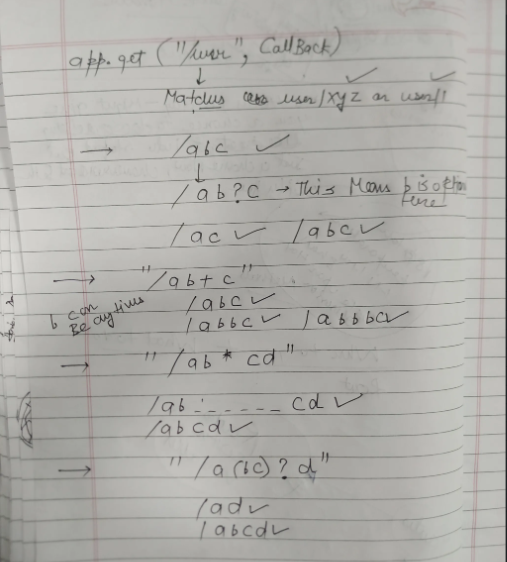 app.get ("/user", CallBack)
↓ ✓ ✓
Matches user/xyz or user/1
→ /abc ✓
↓
/ab?c → This Means b is
here!
/ac ✓ /abc ✓
→ "/ab+c"
b can /abc ✓
Be /abbc ✓ /abbbc ✓
→ "/ab * cd"
/ab - - - - - - cd ✓
/abcd ✓
→ "/a(bc)?d"
/ad ✓
/abcd ✓